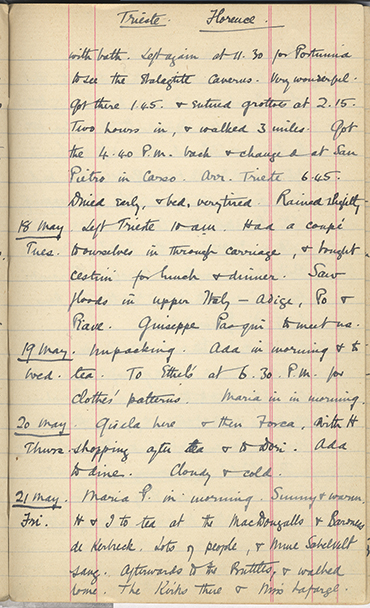 Trieste. Florence.
with bath. Left again at 11.30 for Postumia
to see the Stalagtite Caverns. Very wonderful.
Got there 1.45. & entered grottoes at 2.15.
Two hours in, & walked 3 miles. Got
the 4.40 P.M. back & change at San
Pietro in Carso. Arr. Trieste 6.45.
Dined early, & bed, very tired. Rained slightly
18 May Left Trieste 10 a.m. Had a coupé
Tues. to ourselves in through carriage, & bought
cestini for lunch & dinner. Saw
floods in upper Italy – Adige, Po &
Piave. Giuseppe Pasqui to meet us.
19 May. Unpacking. Ada in morning & to
Wed. tea. To Ethel's at 6.30 P.M. for
clothes' patterns. Maria in in morning.
20 May Gisela here & then Zosca, with H
Thurs shopping after tea & to Dori. Ada
to dine. Cloudy & cold.
21 May. Maria P. in morning. Sunny & warm.
Fri. H & I to tea at the MacDougalls & Baroness
de Kerbeck. Lots of people, & Mme
sang. Afterwards to the & walked
home. The Kirks there & Miss Lafarge.